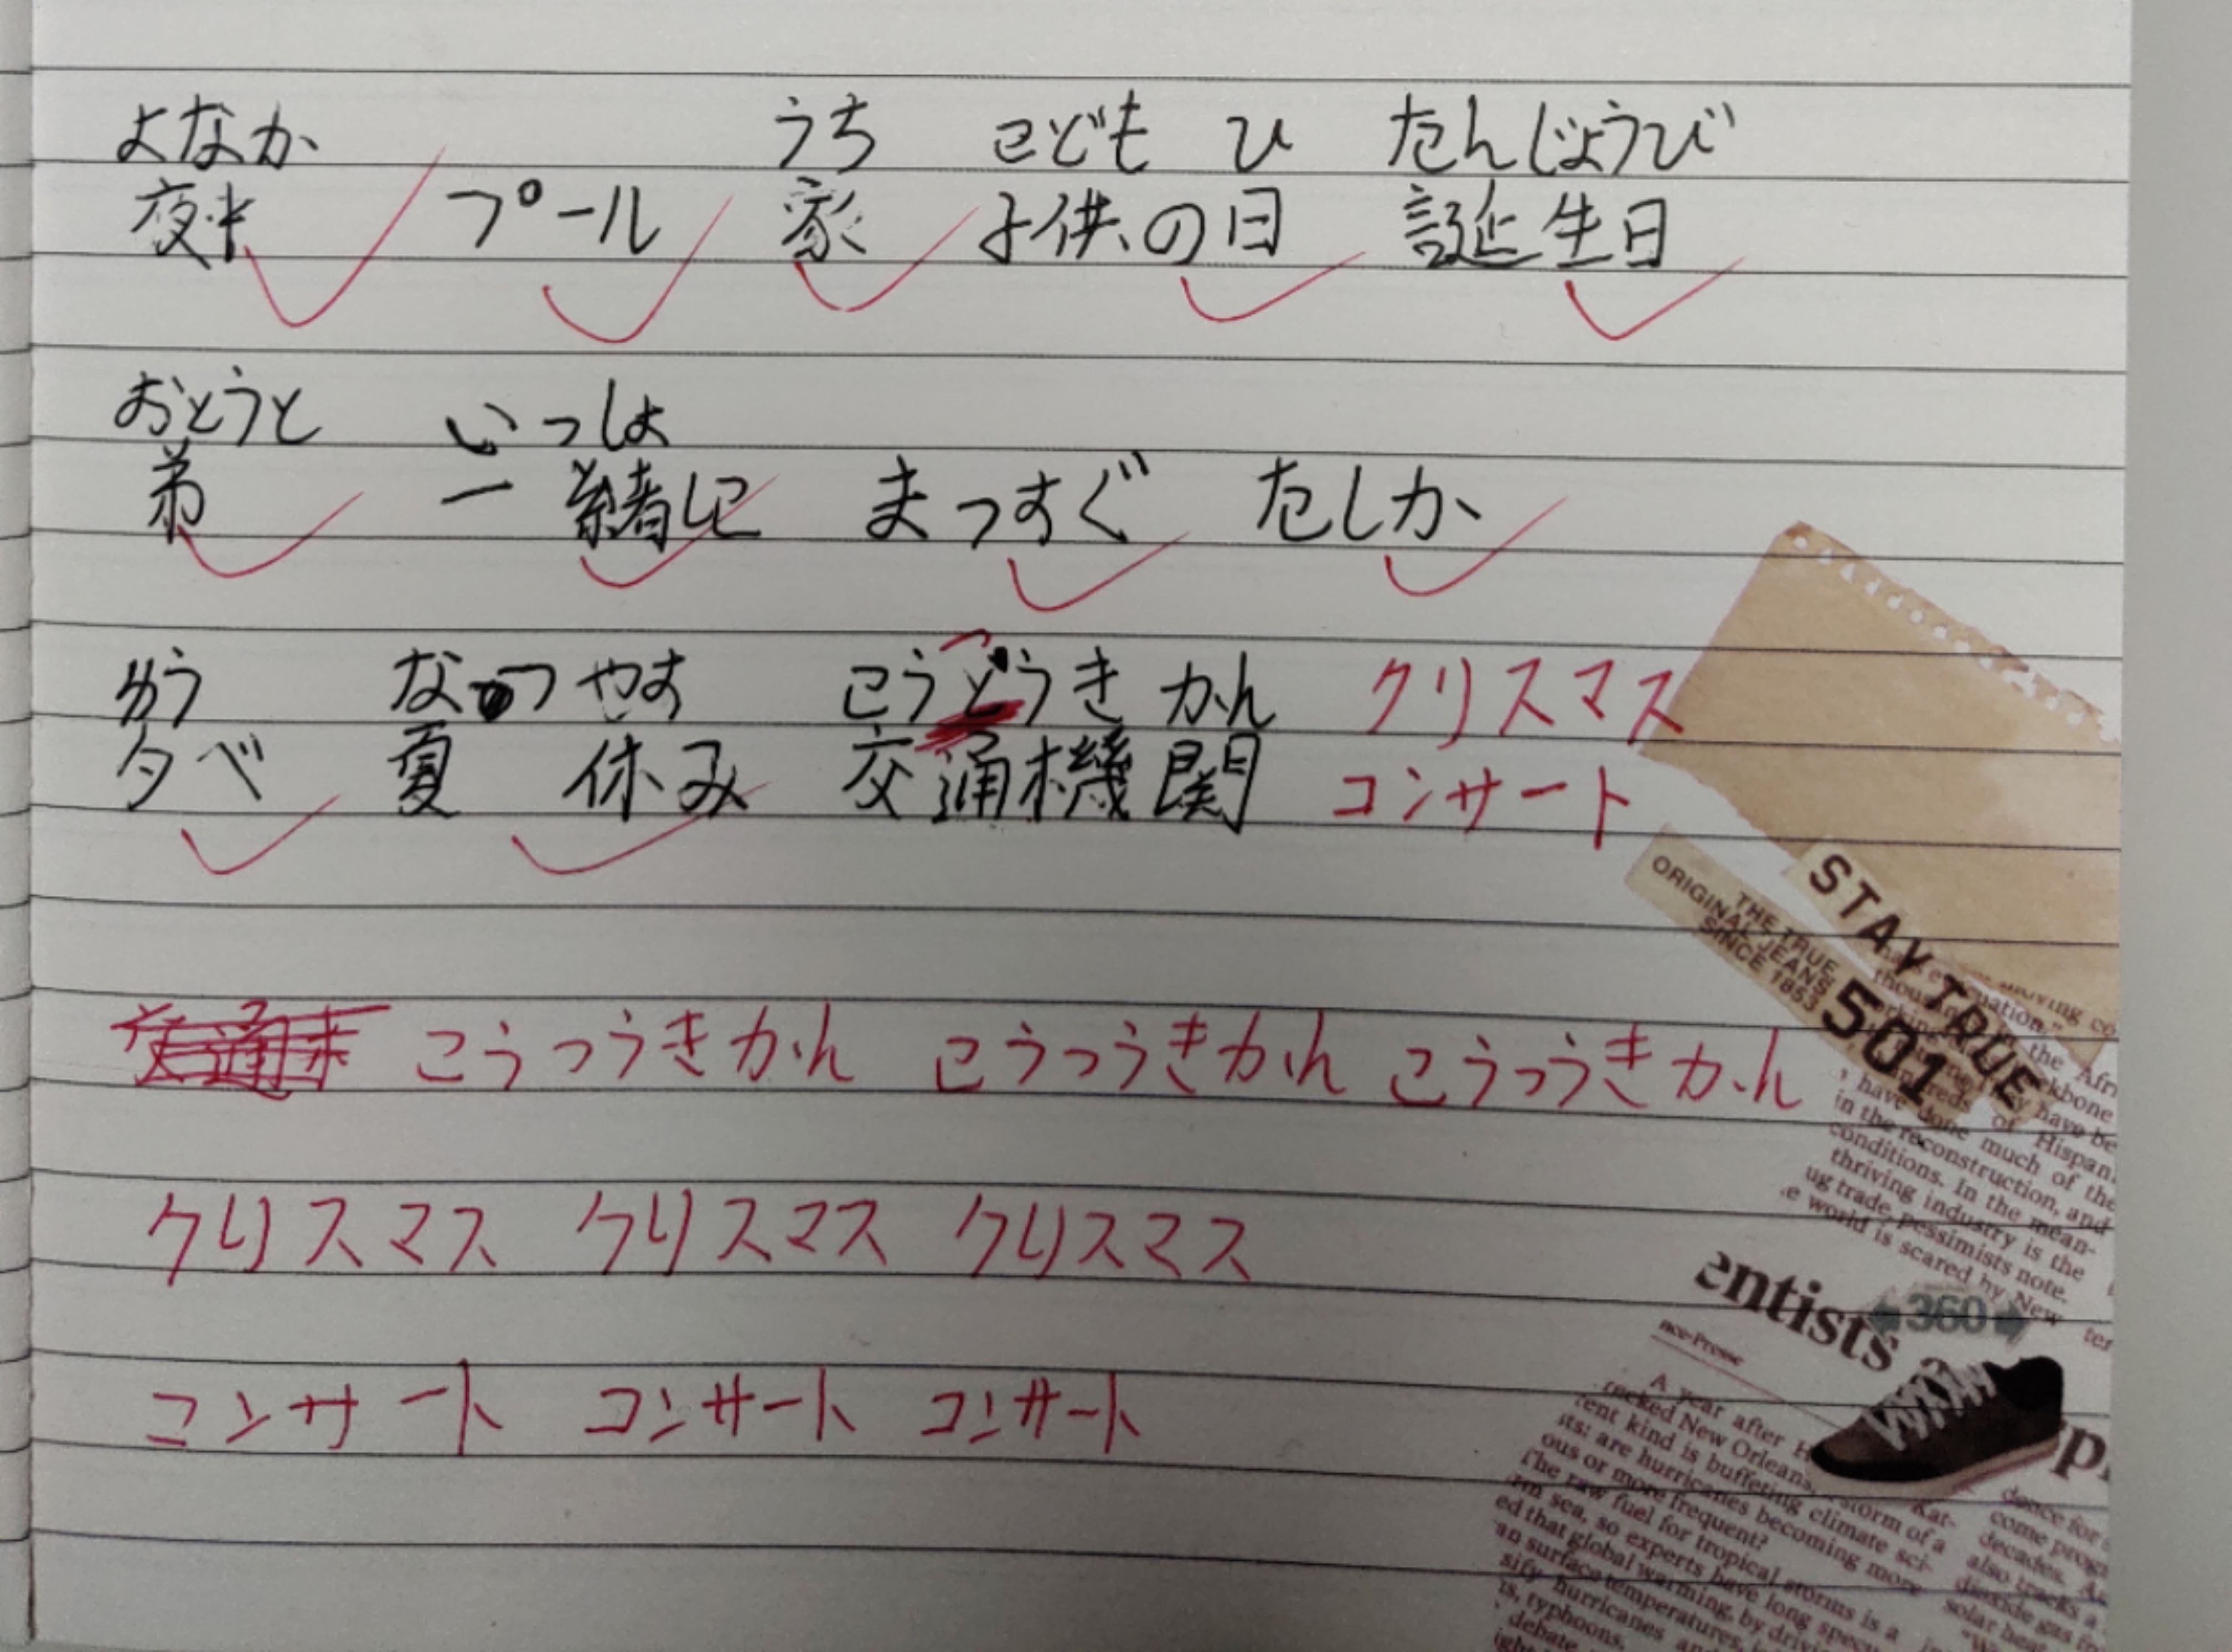 よなか うち こども ひ たんじょうび
夜中 プール 家 子供の日 誕生日
おとうと いっしょ
弟 一緒に まっすぐ たしか
ゆう なつ やす こうどうき かん クリスマス
夕べ 夏 休み 交通機関 コンサート
こうつうきかん こうつうきかん こうつうきかん
クリスマス クリスマス クリスマス
コンサート コンサート コンサート
STAY TRUE
501
ORIGINAL JEANS
THE TRUE
SINCE 1853
the Afri
kbone
have done much of the
in the reconstruction, and
conditions. In the mean-
thriving industry is the
ug trade, pessimists note.
e world is scared by New
entists
360
A year after
recked New Orleans,
rent kind is buffeting climate sci-
its: are hurricanes becoming more
ous or more frequent?
The raw fuel for tropical storms is a
rm sea, so experts have long
ed that global warming, by
an surface temperatures,
sify hurricanes
typhoons.
debate
storm of a
Kat-
dence for
come
decades.
also tracks a
solar